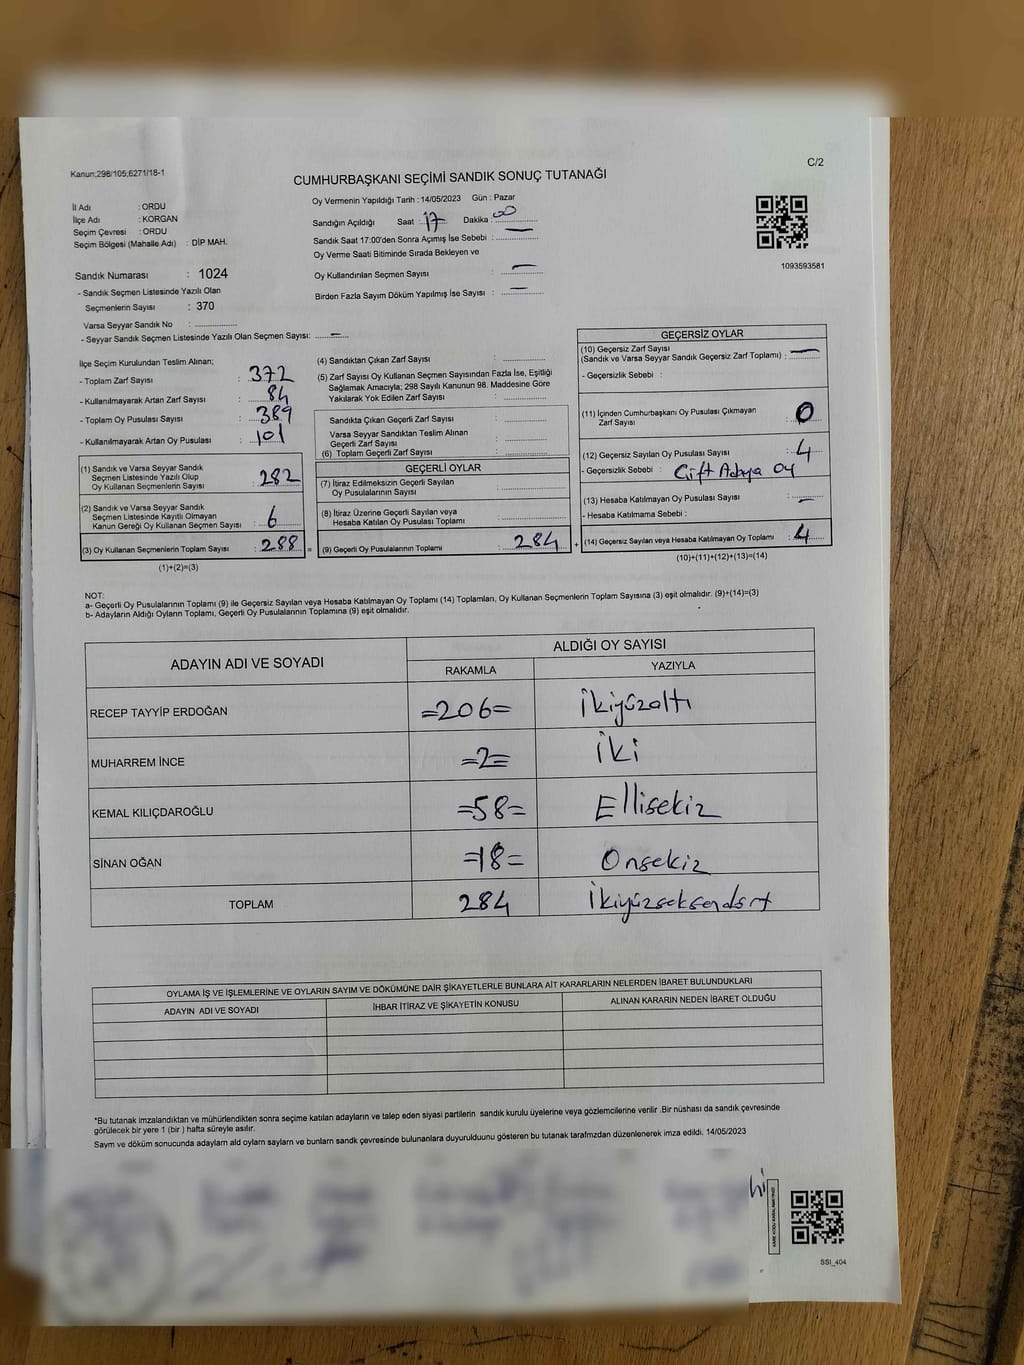 Kanun;298/105;6271/18-1
C/2
CUMHURBAŞKANI SEÇİMİ SANDIK SONUÇ TUTANAĞI
İl Adı : ORDU
İlçe Adı : KORGAN
Seçim Çevresi : ORDU
Seçim Bölgesi (Mahalle Adı) : DİP MAH.
Sandık Numarası : 1024
- Sandık Seçmen Listesinde Yazılı Olan
Seçmenlerin Sayısı : 370
Varsa Seyyar Sandık No :
- Seyyar Sandık Seçmen Listesinde Yazılı Olan Seçmen Sayısı: -
Oy Vermenin Yapıldığı Tarih : 14/05/2023 Gün : Pazar
Sandığın Açıldığı Saat : 17 Dakika : 00
Sandık Saat 17:00'den Sonra Açımış İse Sebebi : -
Oy Verme Saati Bitiminde Sırada Bekleyen ve
Oy Kullandırılan Seçmen Sayısı : -
Birden Fazla Sayım Döküm Yapılmış İse Sayısı : -
1093593581
İlçe Seçim Kurulundan Teslim Alınan;
- Toplam Zarf Sayısı : 372
- Kullanılmayarak Artan Zarf Sayısı : 84
- Toplam Oy Pusulası Sayısı : 389
- Kullanılmayarak Artan Oy Pusulası : 101
(1) Sandık ve Varsa Seyyar Sandık
Seçmen Listesinde Yazılı Olup
Oy Kullanan Seçmenlerin Sayısı : 282
(2) Sandık ve Varsa Seyyar Sandık
Seçmen Listesinde Kayıtlı Olmayan
Kanun Gereği Oy Kullanan Seçmen Sayısı : 6
(3) Oy Kullanan Seçmenlerin Toplam Sayısı : 288 =
(1)+(2)=(3)
(4) Sandıktan Çıkan Zarf Sayısı :
(5) Zarf Sayısı Oy Kullanan Seçmen Sayısından Fazla İse, Eşitliği
Sağlamak Amacıyla; 298 Sayılı Kanunun 98. Maddesine Göre
Yakılarak Yok Edilen Zarf Sayısı :
Sandıkta Çıkan Geçerli Zarf Sayısı :
Varsa Seyyar Sandıktan Teslim Alınan
Geçerli Zarf Sayısı :
(6) Toplam Geçerli Zarf Sayısı :
GEÇERLİ OYLAR
(7) İtiraz Edilmeksizin Geçerli Sayılan
Oy Pusulalarının Sayısı :
(8) İtiraz Üzerine Geçerli Sayılan veya
Hesaba Katılan Oy Pusulası Toplamı :
(9) Geçerli Oy Pusulalarının Toplamı : 284 +
GEÇERSİZ OYLAR
(10) Geçersiz Zarf Sayısı
(Sandık ve Varsa Seyyar Sandık Geçersiz Zarf Toplamı) : -
- Geçersizlik Sebebi :
(11) İçinden Cumhurbaşkanı Oy Pusulası Çıkmayan
Zarf Sayısı : 0
(12) Geçersiz Sayılan Oy Pusulası Sayısı : 4
- Geçersizlik Sebebi : Çift Adaya Oy
(13) Hesaba Katılmayan Oy Pusulası Sayısı : -
- Hesaba Katılmama Sebebi :
(14) Geçersiz Sayılan veya Hesaba Katılmayan Oy Toplamı : 4
(10)+(11)+(12)+(13)=(14)
NOT:
a- Geçerli Oy Pusulalarının Toplamı (9) ile Geçersiz Sayılan veya Hesaba Katılmayan Oy Toplamı (14) Toplamları, Oy Kullanan Seçmenlerin Toplam Sayısına (3) eşit olmalıdır. (9)+(14)=(3)
b- Adayların Aldığı Oyların Toplamı, Geçerli Oy Pusulalarının Toplamına (9) eşit olmalıdır.
ADAYIN ADI VE SOYADI
ALDIĞI OY SAYISI
RAKAMLA YAZIYLA
RECEP TAYYİP ERDOĞAN =206= İkiyüzaltı
MUHARREM İNCE =2= İki
KEMAL KILIÇDAROĞLU =58= Ellisekiz
SİNAN OĞAN =18= Onsekiz
TOPLAM 284 İkiyüzseksendört
OYLAMA İŞ VE İŞLEMLERİNE VE OYLARIN SAYIM VE DÖKÜMÜNE DAİR ŞİKAYETLERLE BUNLARA AİT KARARLARIN NELERDEN İBARET BULUNDUKLARI
ADAYIN ADI VE SOYADI İHBAR İTİRAZ VE ŞİKAYETİN KONUSU ALINAN KARARIN NEDEN İBARET OLDUĞU
*Bu tutanak imzalandıktan ve mühürlendikten sonra seçime katılan adayların ve talep eden siyasi partilerin sandık kurulu üyelerine veya gözlemcilerine verilir .Bir nüshası da sandık çevresinde
görülecek bir yere 1 (bir ) hafta süreyle asılır.
Sayım ve döküm sonucunda adaylarn ald oylarn saylarn ve bunlarn sandk çevresinde bulunanlara duyurulduunu gösteren bu tutanak tarafmzdan düzenlenerek imza edildi. 14/05/2023
hi
SSI_404